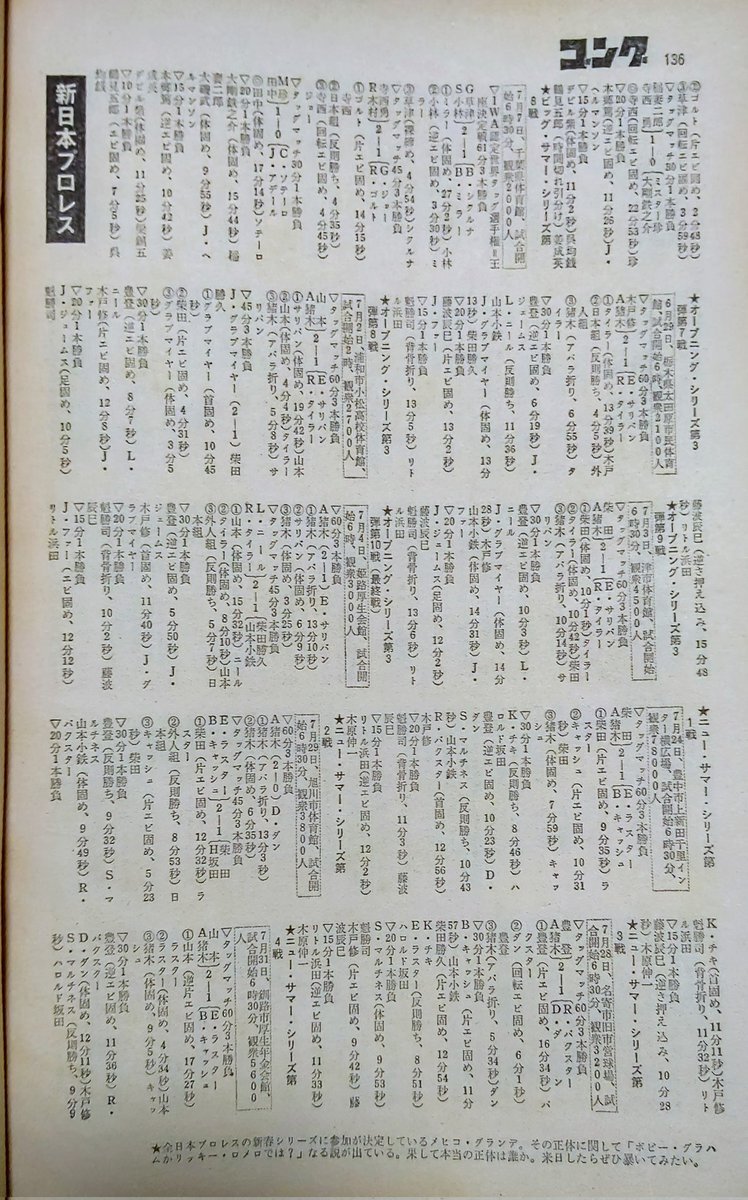 ゴング 136
②ゴルト（片エビ固め、2分48秒）
③草津（回転エビ固め、3分59秒）
▽タッグマッチ30分1本勝負
稲妻二郎 ミスター珍
寺西 勇 1―0 大剛鉄之介
⑥寺西（回転エビ固め、22分53秒）珍
▽20分1本勝負
本郷篤（逆エビ固め、11分26秒）J・
ヘルマンソン
▽15分1本勝負
デビル紫（体固め、11分2秒）呉均銭
鶴見五郎（時間切れ引分け）姜成英
★ビッグ・サマー・シリーズ第
8戦
7月7日、千葉県体育館、試合開
始6時30分、観衆2000人
▽IWA認定世界タッグ選手権＝王
座決定戦61分3本勝負
G草津 B・シクルナ
S小林 2―1 B・ミラー
①ミラー（体固め、27分2秒）小林
②小林（ラッシング、3分30秒）ミ
ラー
③草津（横詰め、4分54秒）シクルナ
▽タッグマッチ45分3本勝負
寺西勇 G・ジョー
R木村 2―1 G・ゴルト
①ゴルト（片エビ固め、14分15秒）
寺西
②日本組（反則勝ち、4分35秒）
③寺西（回転エビ固め、4分45秒）
ジョー
▽タッグマッチ30分1本勝負
M・珍 C・ソテーロ
田中 1―0 J・アデール
⑥田中（体固め、17分14秒）ソテーロ
▽20分1本勝負
大剛鉄之介（体固め、15分44秒）稲
妻二郎
大磯武（体固め、9分55秒）J・ヘ
ルマンソン
▽15分1本勝負
本郷篤（逆エビ固め、10分42秒）姜
成英
デビル紫（体固め、11分25秒）柴館五
▽10分1本勝負
鶴見五郎（エビ固め、7分5秒）呉
均銭
新日本プロレス
★オープニング・シリーズ第3
弾第7戦
6月29日、栃木県大田原市民体育
館、試合開始6時、観衆2100人
▽タッグマッチ60分3本勝負
木戸修 E・サリバン
A猪木 2―1 R・タイラー
①タイラー（体固め、13分39秒）木戸
②日本組（反則勝ち、4分5秒）外
人組
③猪木（アバラ折り、6分55秒）タ
イラー
▽30分1本勝負
豊登（逆エビ固め、6分19秒）J・
ジェームス
L・ニール（反則勝ち、11分36秒）
山本小鉄
J・グラブマイヤー（体固め、13分
13秒）柴田勝久
▽20分1本勝負
藤波辰巳（片エビ固め、13分2秒）
J・ファー
▽15分1本勝負
魁勝司（背骨折り、13分5秒）リト
ル浜田
★オープニング・シリーズ第3
弾第8戦
7月2日、浦和市小松高校体育館、
試合開始2時、観衆2700人
▽タッグマッチ60分3本勝負
山本 E・サリバン
A猪木 2―1 R・タイラー
①サリバン（体固め、19分42秒）山本
②山本（体固め、4分4秒）タイラー
③猪木（アバラ折り、5分8秒）サ
リバン
▽45分3本勝負
J・グラブマイヤー（2―1）柴田
勝久
①グラブマイヤー（首固め、10分45
秒）
②柴田（片エビ固め、4分31秒）
③グラブマイヤー（体固め、3分5
秒）
▽30分1本勝負
豊登（逆エビ固め、8分7秒）L・
ニール
木戸修（片エビ固め、12分8秒）J・
ファー
▽20分1本勝負
J・ジェームス（足固め、10分5秒）
魁勝司
藤波辰巳（逆さ押え込み、15分48
秒）リトル浜田
★オープニング・シリーズ第3
弾第9戦
7月3日、津市体育館、試合開始
6時30分、観衆4500人
▽タッグマッチ60分3本勝負
柴田 E・サリバン
A猪木 2―1 R・タイラー
①柴田（体固め、10分1秒）タイラー
②タイラー（体固め、10分42秒）柴田
③猪木（アバラ折り、10分14秒）サ
リバン
▽30分1本勝負
豊登（体固め、10分3秒）L・
ニール
J・グラブマイヤー（体固め、14分
28秒）木戸修
山本小鉄（体固め、14分31秒）J・
ファー
▽20分1本勝負
J・ジェームス（足固め、12分2秒）
藤波辰巳
魁勝司（背骨折り、13分6秒）リト
ル浜田
★オープニング・シリーズ第3
弾第10戦（最終戦）
7月4日、姫路厚生会館、試合開
始6時、観衆3000人
▽60分3本勝負
A猪木（2―1）E・サリバン
①猪木（アバラ折り、13分10秒）
②サリバン（体固め、6分9秒）
③猪木（体固め、3分25秒）
▽タッグマッチ45分3本勝負
L・ニール 柴田勝久
R・タイラー 2―1 山本小鉄
①山本（体固め、15分32秒）ニール
②タイラー（体固め、8分10秒）山本
③外人組（反則勝ち、5分7秒）日
本組
▽30分1本勝負
豊登（逆エビ固め、5分50秒）J・
ジェームス
木戸修（首固め、11分40秒）J・グ
ラブマイヤー
▽20分1本勝負
魁勝司（背骨折り、10分2秒）藤波
辰巳
▽15分1本勝負
J・ファー（エビ固め、12分12秒）
リトル浜田
★ニュー・サマー・シリーズ第
1戦
7月24日、豊中市上新田千里イン
ター横広場、試合開始6時30分、
観衆7800人
▽タッグマッチ60分3本勝負
柴田 E・ラスター
A猪木 2―1 B・キャッシュ
①柴田（片エビ固め、9分35秒）ラ
スター
②キャッシュ（片エビ固め、10分31
秒）柴田
③猪木（体固め、7分59秒）キャッ
シュ
▽30分1本勝負
K・チキ（反則勝ち、8分46秒）ハ
ロルド坂田
豊登（逆エビ固め、10分23秒）D・
ダン
S・マルチネス（反則勝ち、10分43
秒）山本小鉄
R・バクスター（首固め、12分56秒）
木戸修
▽20分1本勝負
魁勝司（背骨折り、11分3秒）藤波
辰巳
▽15分1本勝負
リトル浜田（逆エビ固め、12分2秒）
木原伸一
★ニュー・サマー・シリーズ第
2戦
7月29日、旭川市体育館、試合開
始6時30分、観衆3800人
▽60分3本勝負
A猪木（2―0）D・ダン
①猪木（アバラ折り、13分3秒）
②猪木（体固め、6分35秒）
▽タッグマッチ45分3本勝負
E・ラスター 柴田
B・キャッシュ 2―1 H坂田
①柴田（片エビ固め、12分32秒）ラ
スター
②外人組（反則勝ち、8分53秒）日
本組
③キャッシュ（片エビ固め、5分23
秒）柴田
▽30分1本勝負
豊登（反則勝ち、9分32秒）S・マ
ルチネス
山本小鉄（体固め、9分49秒）R・
バクスター
▽20分1本勝負
K・チキ（首固め、11分11秒）木戸修
魁勝司（背骨折り、11分32秒）リト
ル浜田
▽15分1本勝負
藤波辰巳（逆さ押え込み、10分28
秒）木原伸一
★ニュー・サマー・シリーズ第
3戦
7月28日、名寄市旧市営球場、試
合開始6時30分、観衆3200人
▽タッグマッチ60分3本勝負
豊登 R・バクスター
A猪木 2―1 D・ダン
①豊登（片エビ固め、16分34秒）バ
クスター
②ダン（回転エビ固め、6分1秒）
豊登
③猪木（アバラ折り、5分34秒）ダン
▽30分1本勝負
B・キャッシュ（片エビ固め、11分
57秒）山本小鉄
柴田勝久（片エビ固め、9分54秒）
K・チキ
E・ラスター（反則勝ち、8分51秒）
ハロルド坂田
S・マルチネス（体固め、9分53秒）
▽20分1本勝負
魁勝司
木戸修（片エビ固め、9分42秒）藤
波辰巳
▽15分1本勝負
リトル浜田（逆エビ固め、11分33秒）
木原伸一
★ニュー・サマー・シリーズ第
4戦
7月31日、釧路市厚生年金会館、
試合開始6時30分、観衆500
人
▽タッグマッチ60分3本勝負
山本 E・ラスター
A猪木 2―1 B・キャッシュ
①山本（逆片エビ固め、17分27秒）
ラスター
②ラスター（体固め、4分34秒）山本
③猪木（体固め、9分5秒）キャッ
シュ
▽30分1本勝負
豊登（逆エビ固め、11分36秒）R・
バクスター
D・ダン（体固め、12分1秒）木戸修
S・マルチネス（反則勝ち、9分9
秒）ハロルド坂田
★全日本プロレスの新春シリーズに参加が決定しているメヒコ・グランデ。その正体に関して「ボビー・グラハ
ムかリッキー・ロメロでは？」なる説が出ている。果して本当の正体は誰か。来日したらぜひ暴いてみたい。